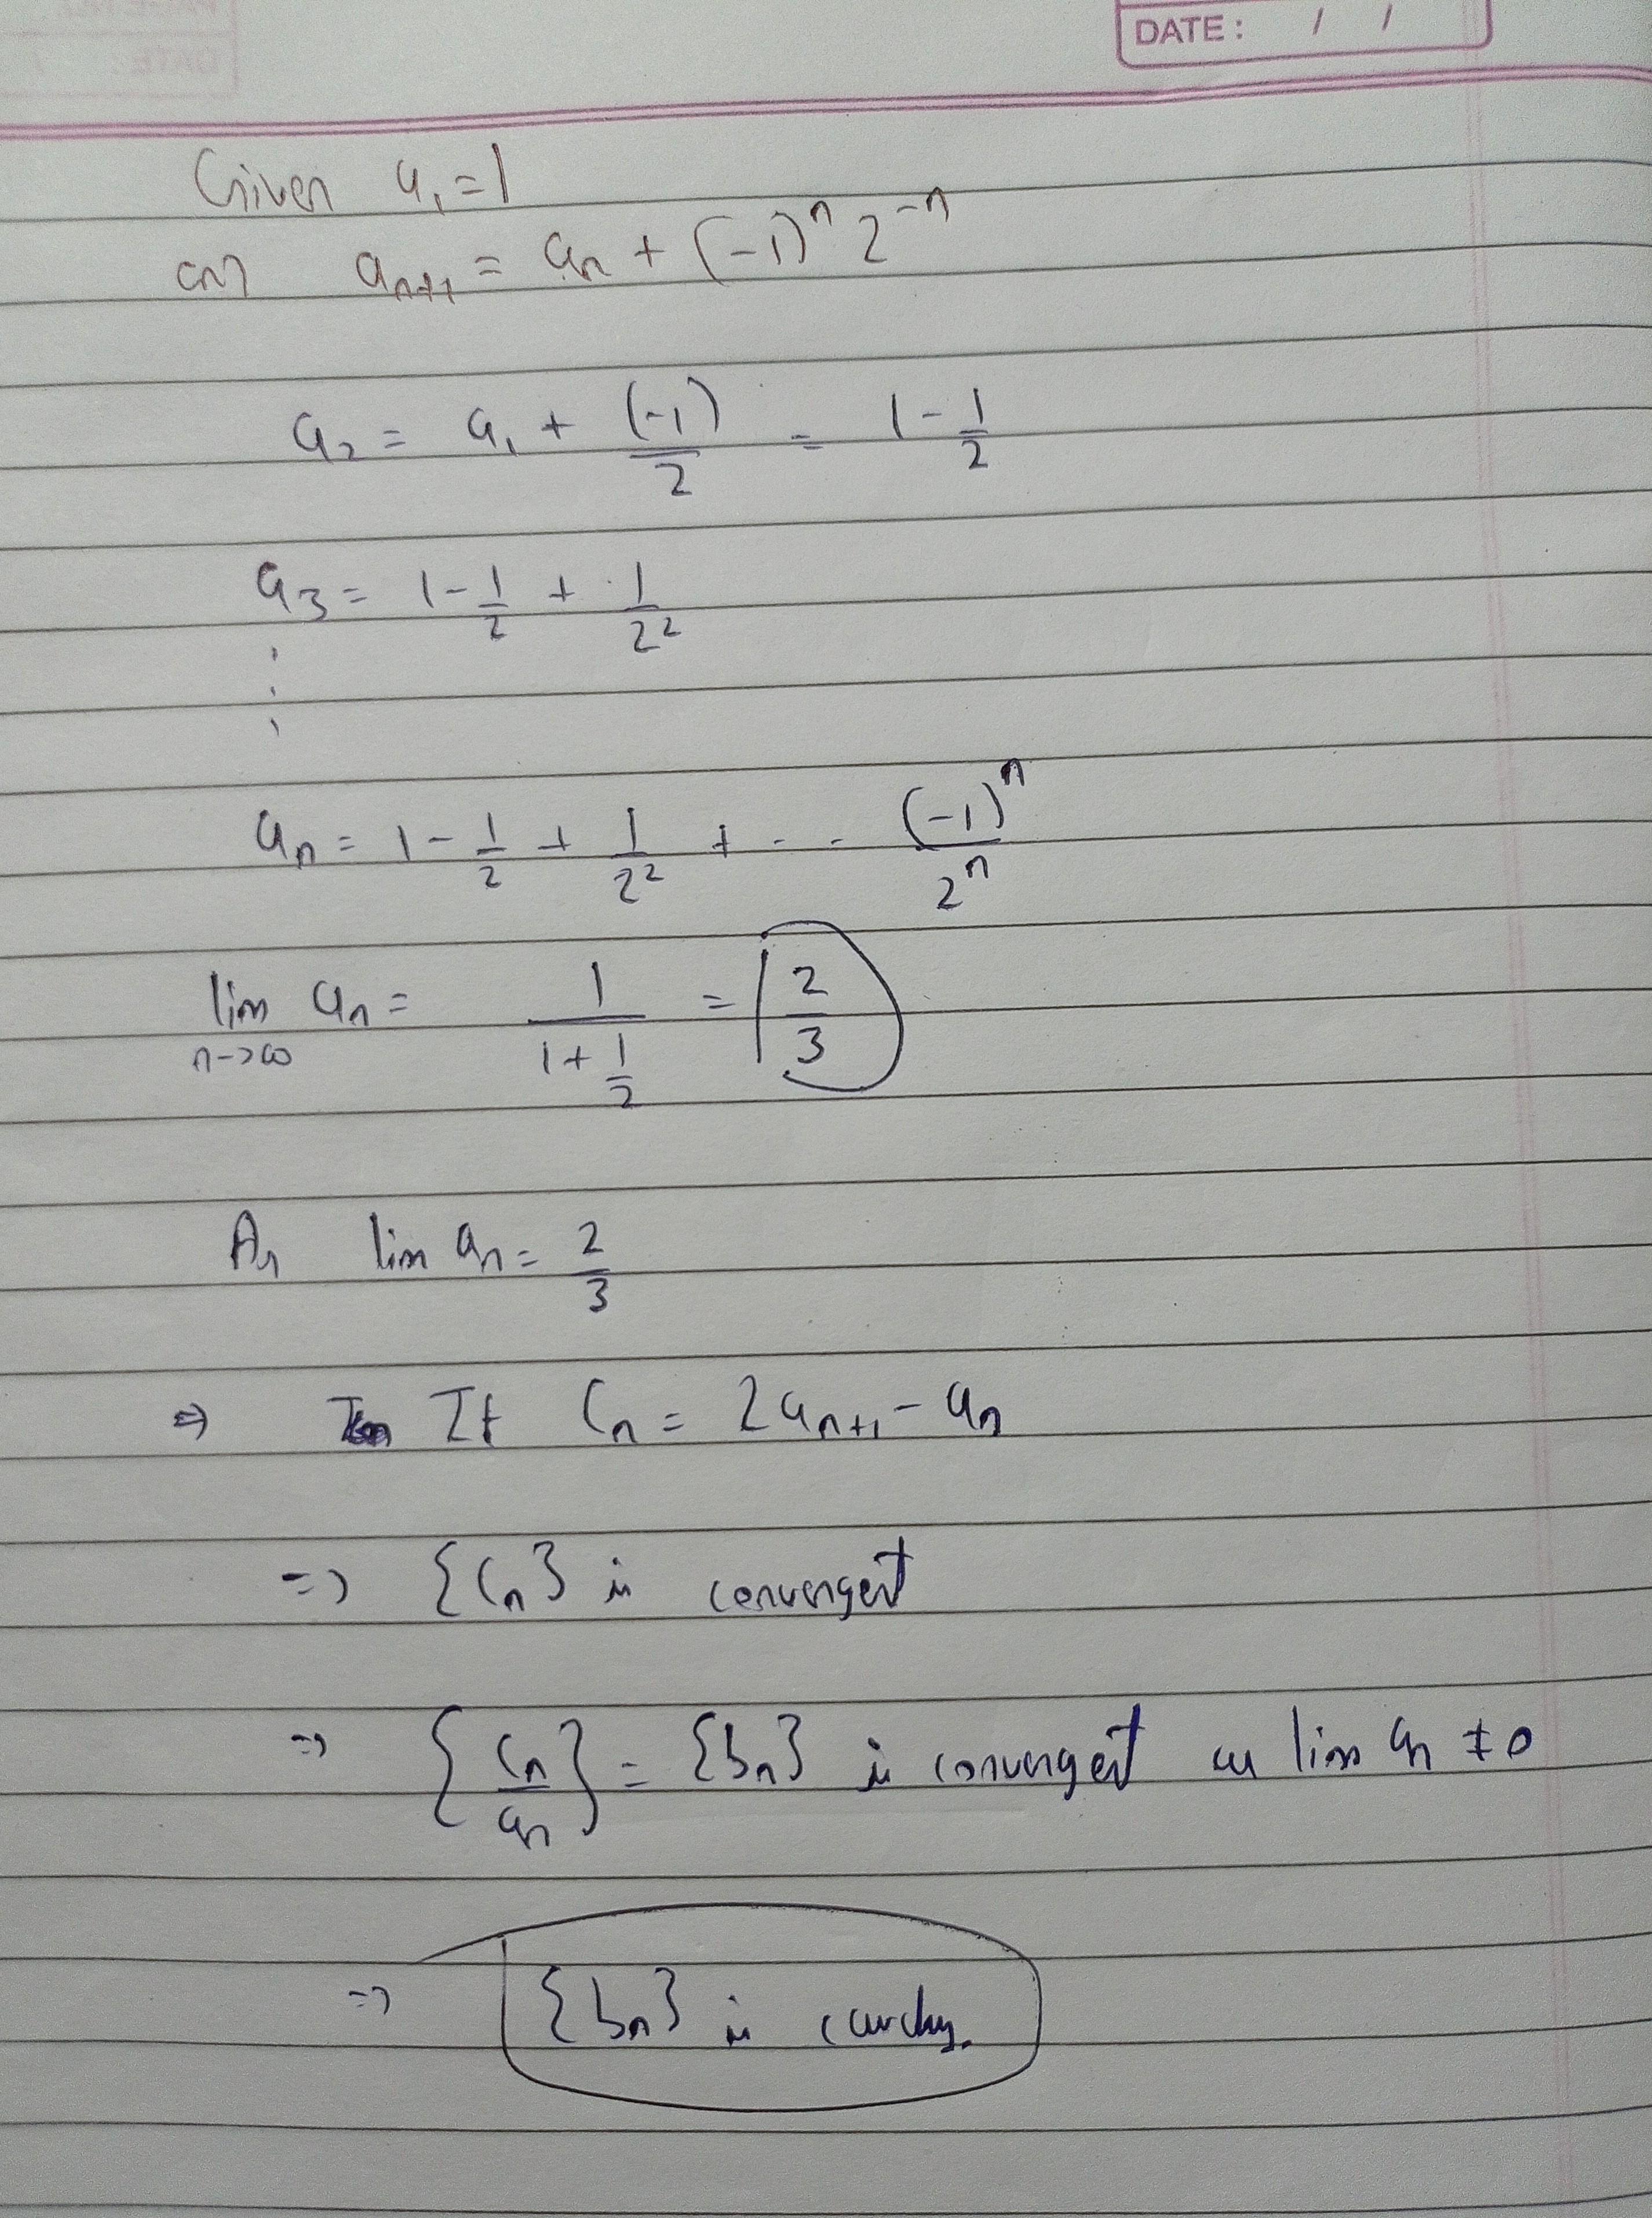 DATE: / /
Given a₁ = 1
and aₙ₊₁ = aₙ + (-1)ⁿ 2⁻ⁿ
a₂ = a₁ + (-1)/2 = 1 - 1/2
a₃ = 1 - 1/2 + 1/2²
⋮
aₙ = 1 - 1/2 + 1/2² + - - (-1)ⁿ/2ⁿ
lim n->∞ aₙ = 1/(1 + 1/2) = 2/3
As lim aₙ = 2/3
=> If Cₙ = 2aₙ₊₁ - aₙ
=> {Cₙ} is convergent
=> {Cₙ/aₙ} = {bₙ} is convergent as lim aₙ ≠ 0
=> {bₙ} is cauchy.